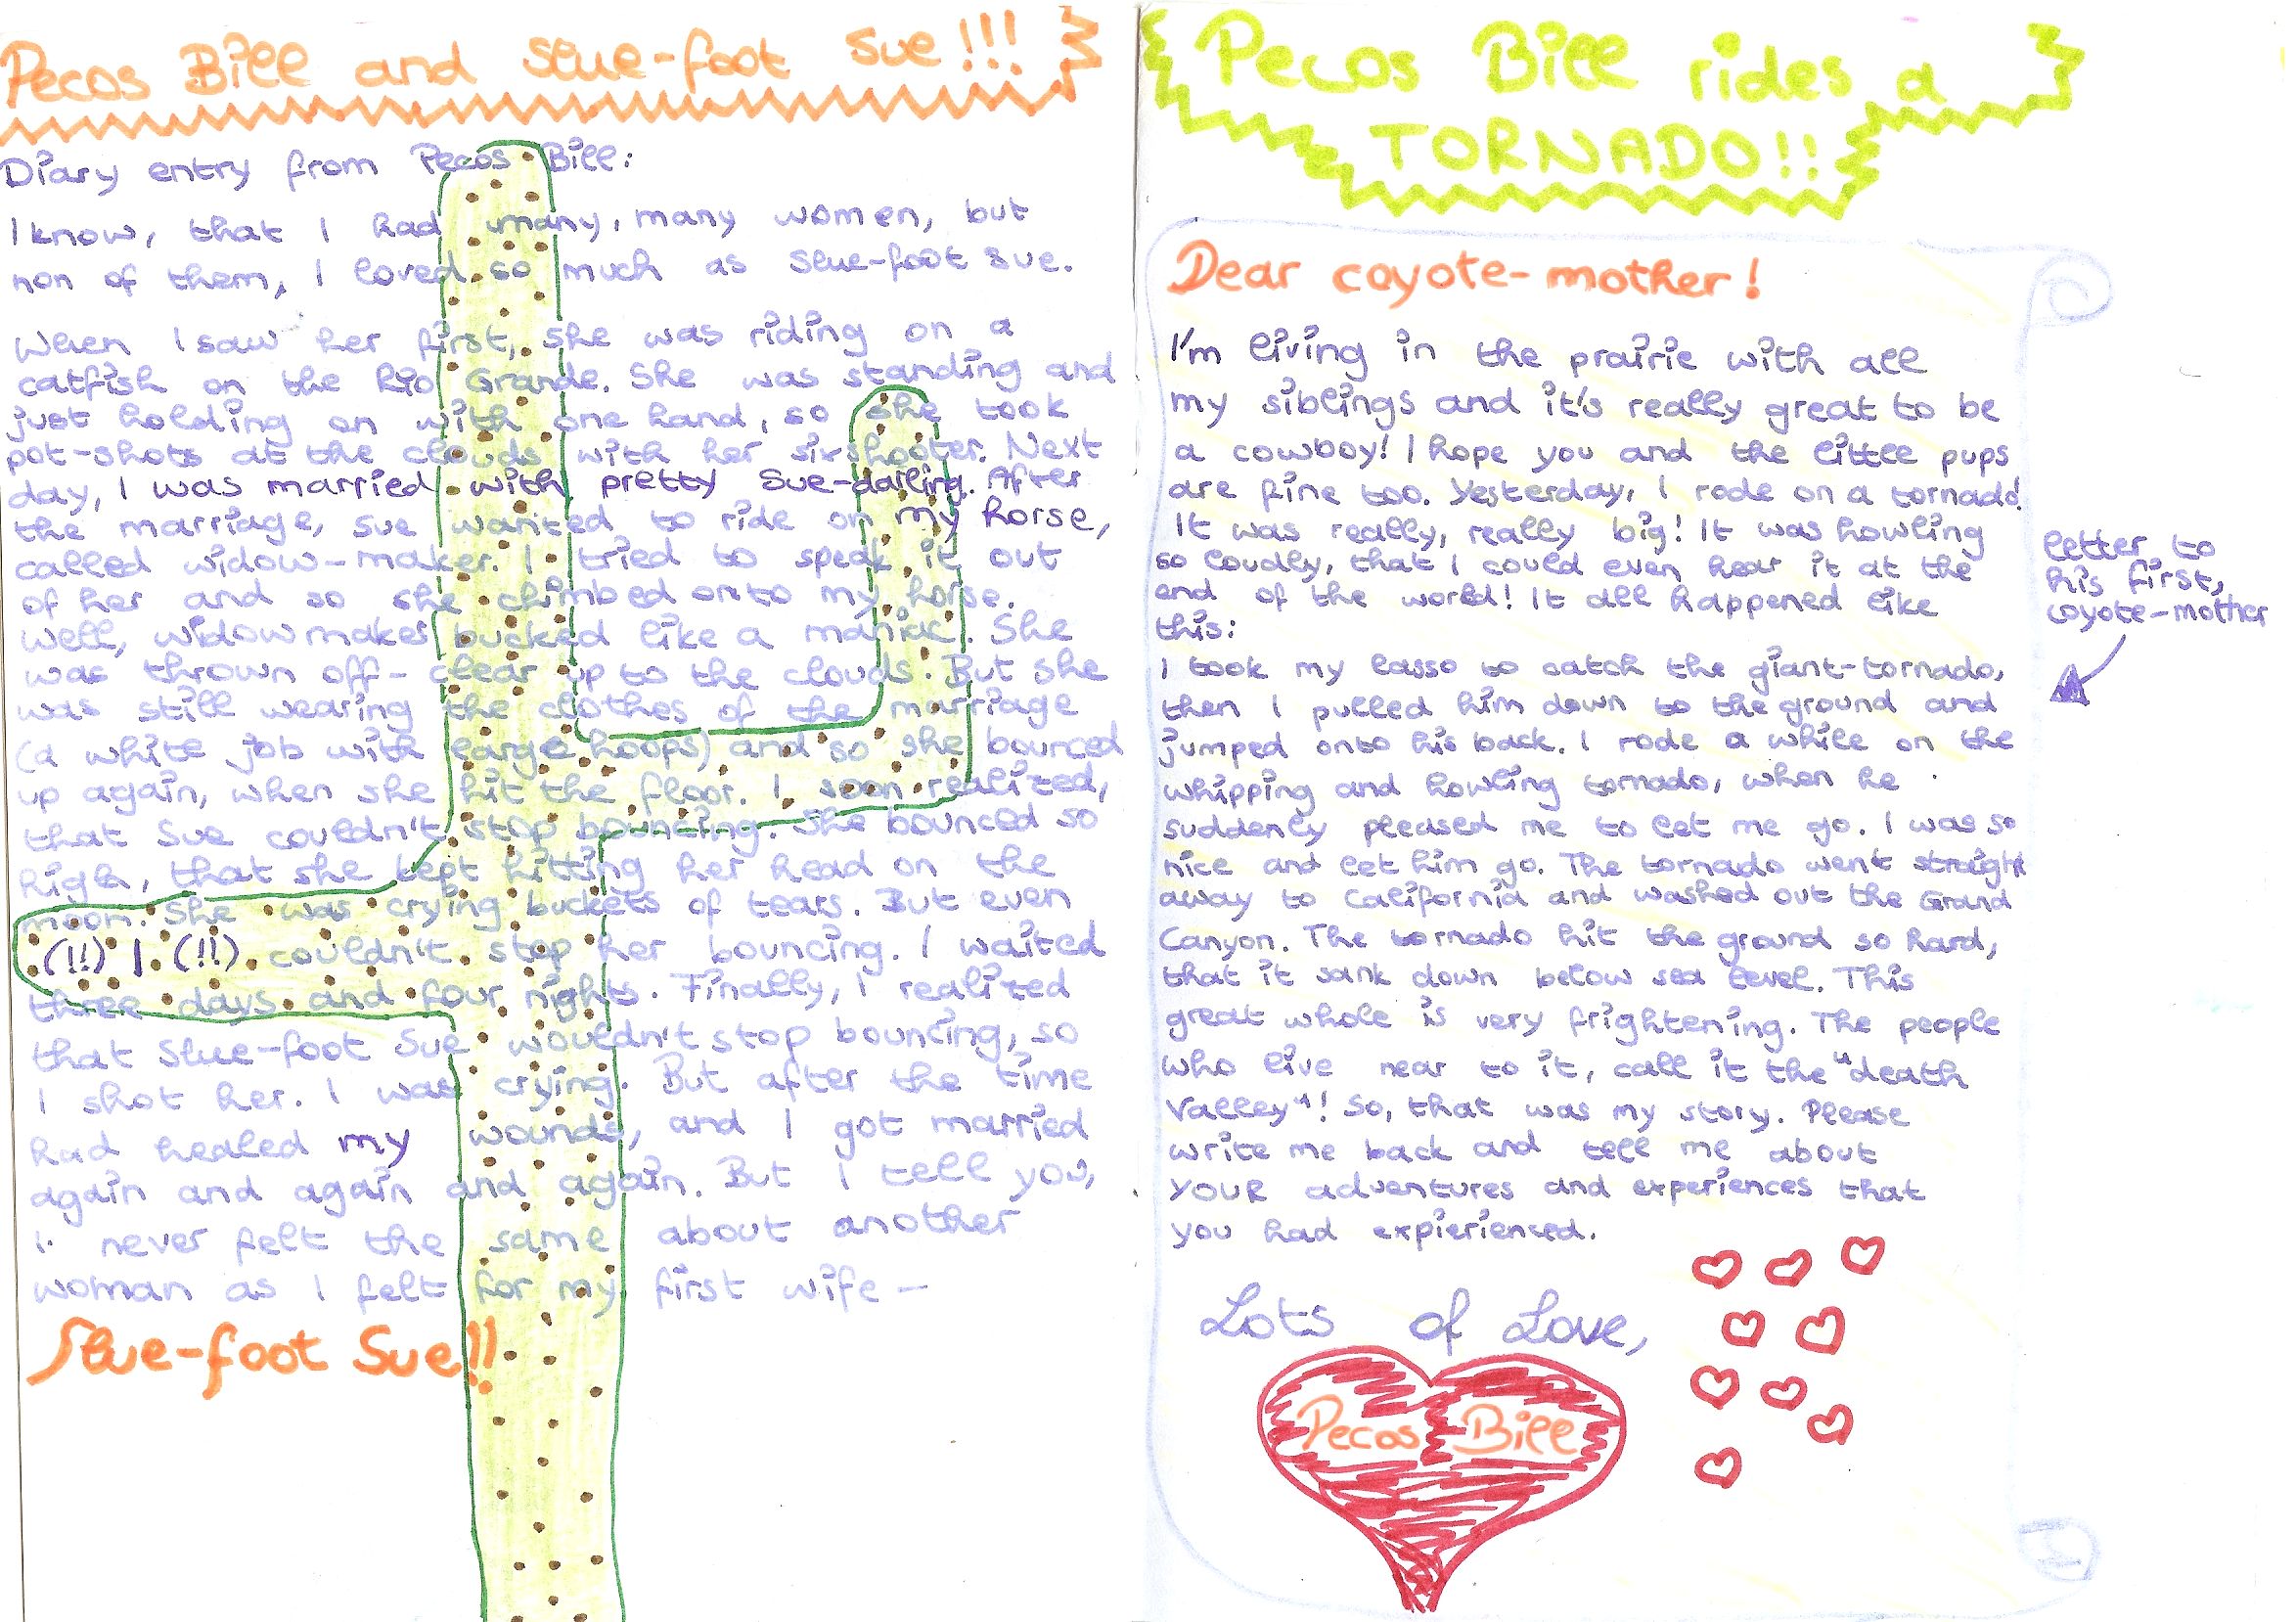 Pecos Bill and Slue-foot Sue!!!
Diary entry from Pecos Bill:
I know, that I had many, many women, but
non of them, I loved so much as Slue-foot Sue.
When I saw her first, she was riding on a
catfish on the Rio Grande. She was standing and
just holding on with one hand, so she took
pot-shots at the clouds with her sixshooter. Next
day, I was married with pretty Sue-darling. After
the marriage, Sue wanted to ride on my horse,
called widow-maker. I tried to speak it out
of her and so she climbed onto my horse.
Well, widowmaker bucked like a maniac. She
was thrown off- clear up to the clouds. But she
was still wearing the clothes of the marriage
(a white job with large hoops) and so she bounced
up again, when she hit the floor. I soon realized,
that Sue couldn't stop bouncing. She bounced so
high, that she kept hitting her head on the
moon. She was crying buckets of tears. But even
(!!) I (!!) couldn't stop her bouncing. I waited
three days and four nights. Finally, I realized
that Slue-foot Sue wouldn't stop bouncing, so
I shot her. I was crying. But after the time
had healed my wounds, and I got married
again and again and again. But I tell you,
I never felt the same about another
woman as I felt for my first wife -
Slue-foot Sue!!
Pecos Bill rides a
TORNADO!!
Dear coyote-mother!
I'm living in the prairie with all
my siblings and it's really great to be
a cowboy! I hope you and the little pups
are fine too. Yesterday, I rode on a tornado!
It was really, really big! It was howling
so loudly, that I could even hear it at the
end of the world! It all happened like
this:
I took my lasso to catch the giant-tornado,
then I pulled him down to the ground and
jumped onto his back. I rode a while on the
whipping and howling tornado, when he
suddenly pleased me to let me go. I was so
nice and let him go. The tornado went straight
away to California and washed out the Grand
Canyon. The tornado hit the ground so hard,
that it sank down below sea level. This
great whole is very frightening. The people
who live near to it, call it the "death
Valley"! So, that was my story. Please
write me back and tell me about
YOUR adventures and experiences that
you had expierienced.
Lots of Love,
Pecos Bill
letter to
his first,
coyote-mother